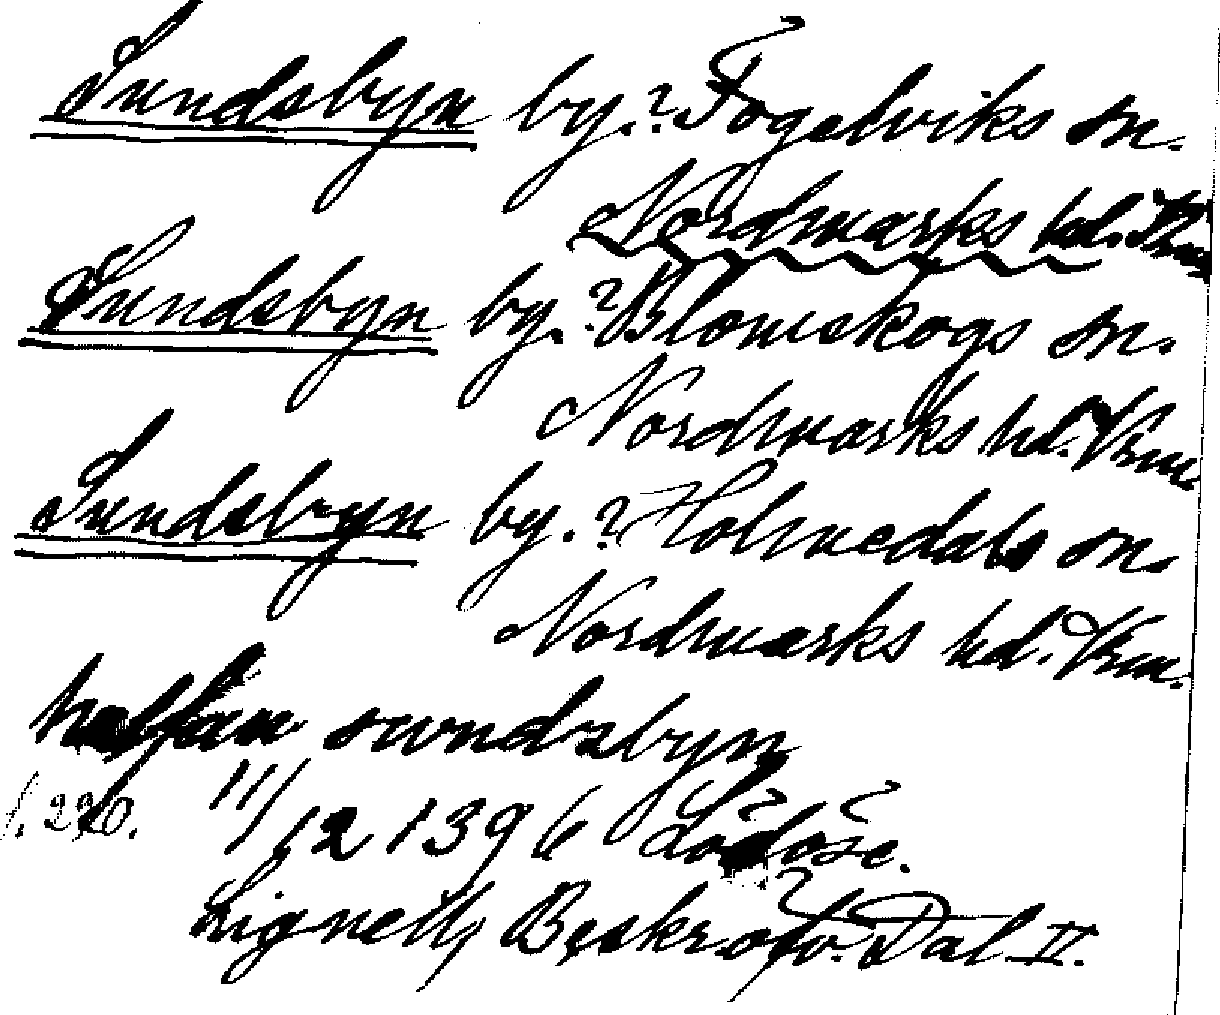 Sundsbyn by. ? Fogelviks sn.
Nordmarks hd. Vrm.
Sundsbyn by. ? Blomskogs sn.
Nordmarks hd. Vrm.
Sundsbyn by. ? Holmedals sn.
Nordmarks hd. Vrm.
halfan swndzbyn
11/12 1396 Lödöse.
Lignell, Beskr. öfv. Dal II.